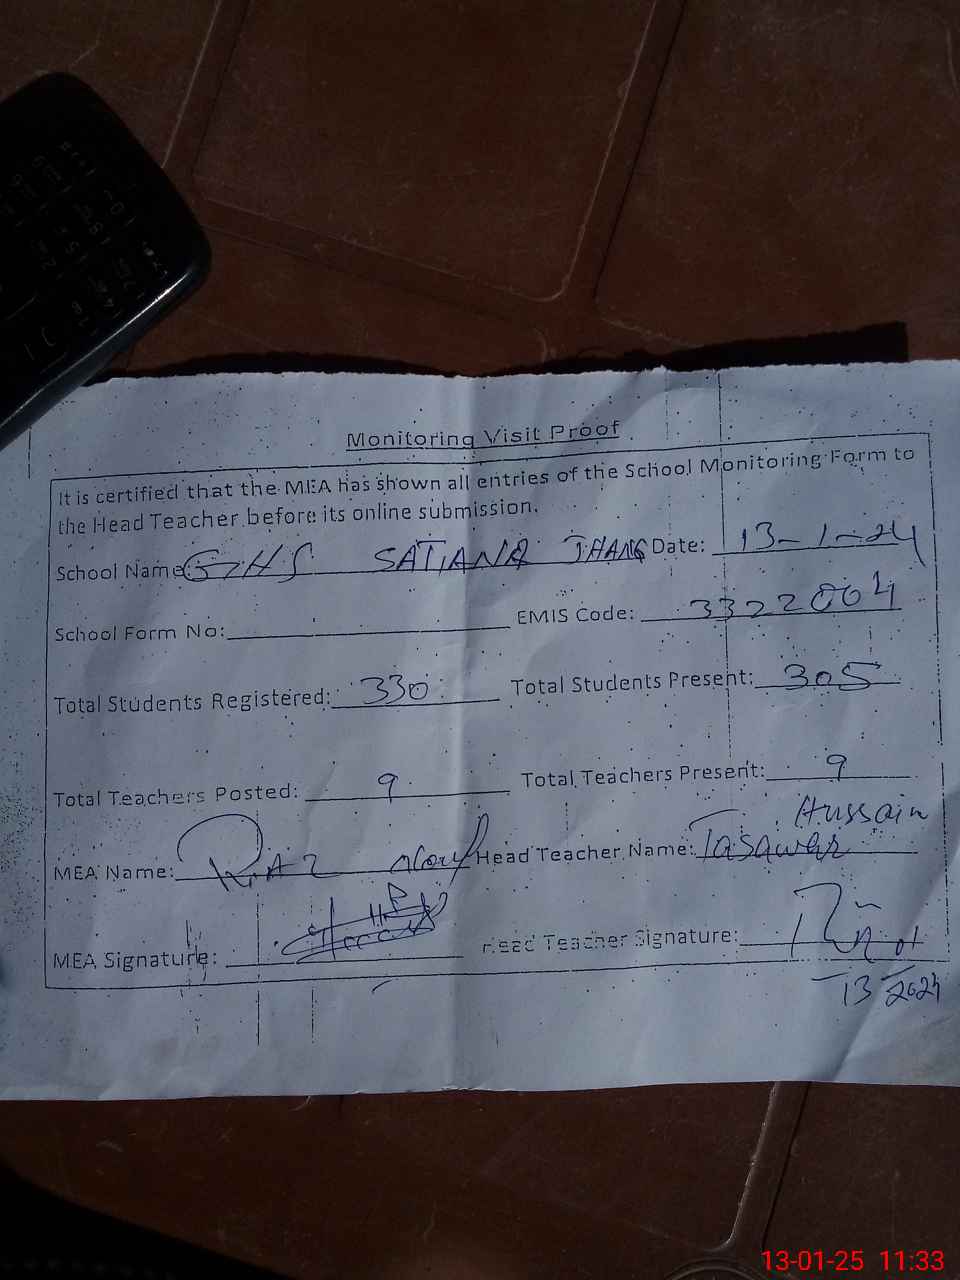 Monitoring Visit Proof
It is certified that the MEA has shown all entries of the School Monitoring Form to
the Head Teacher before its online submission.
School Name GHS SATIANA JHANG Date: 13-1-24
School Form No: EMIS Code: 33220004
Total Students Registered: 330 Total Students Present: 305
Total Teachers Posted: 9 Total Teachers Present: 9
Hussain
MEA Name: Head Teacher Name: Tasawar
MEA Signature: Head Teacher Signature:
13 2024
13-01-25 11:33